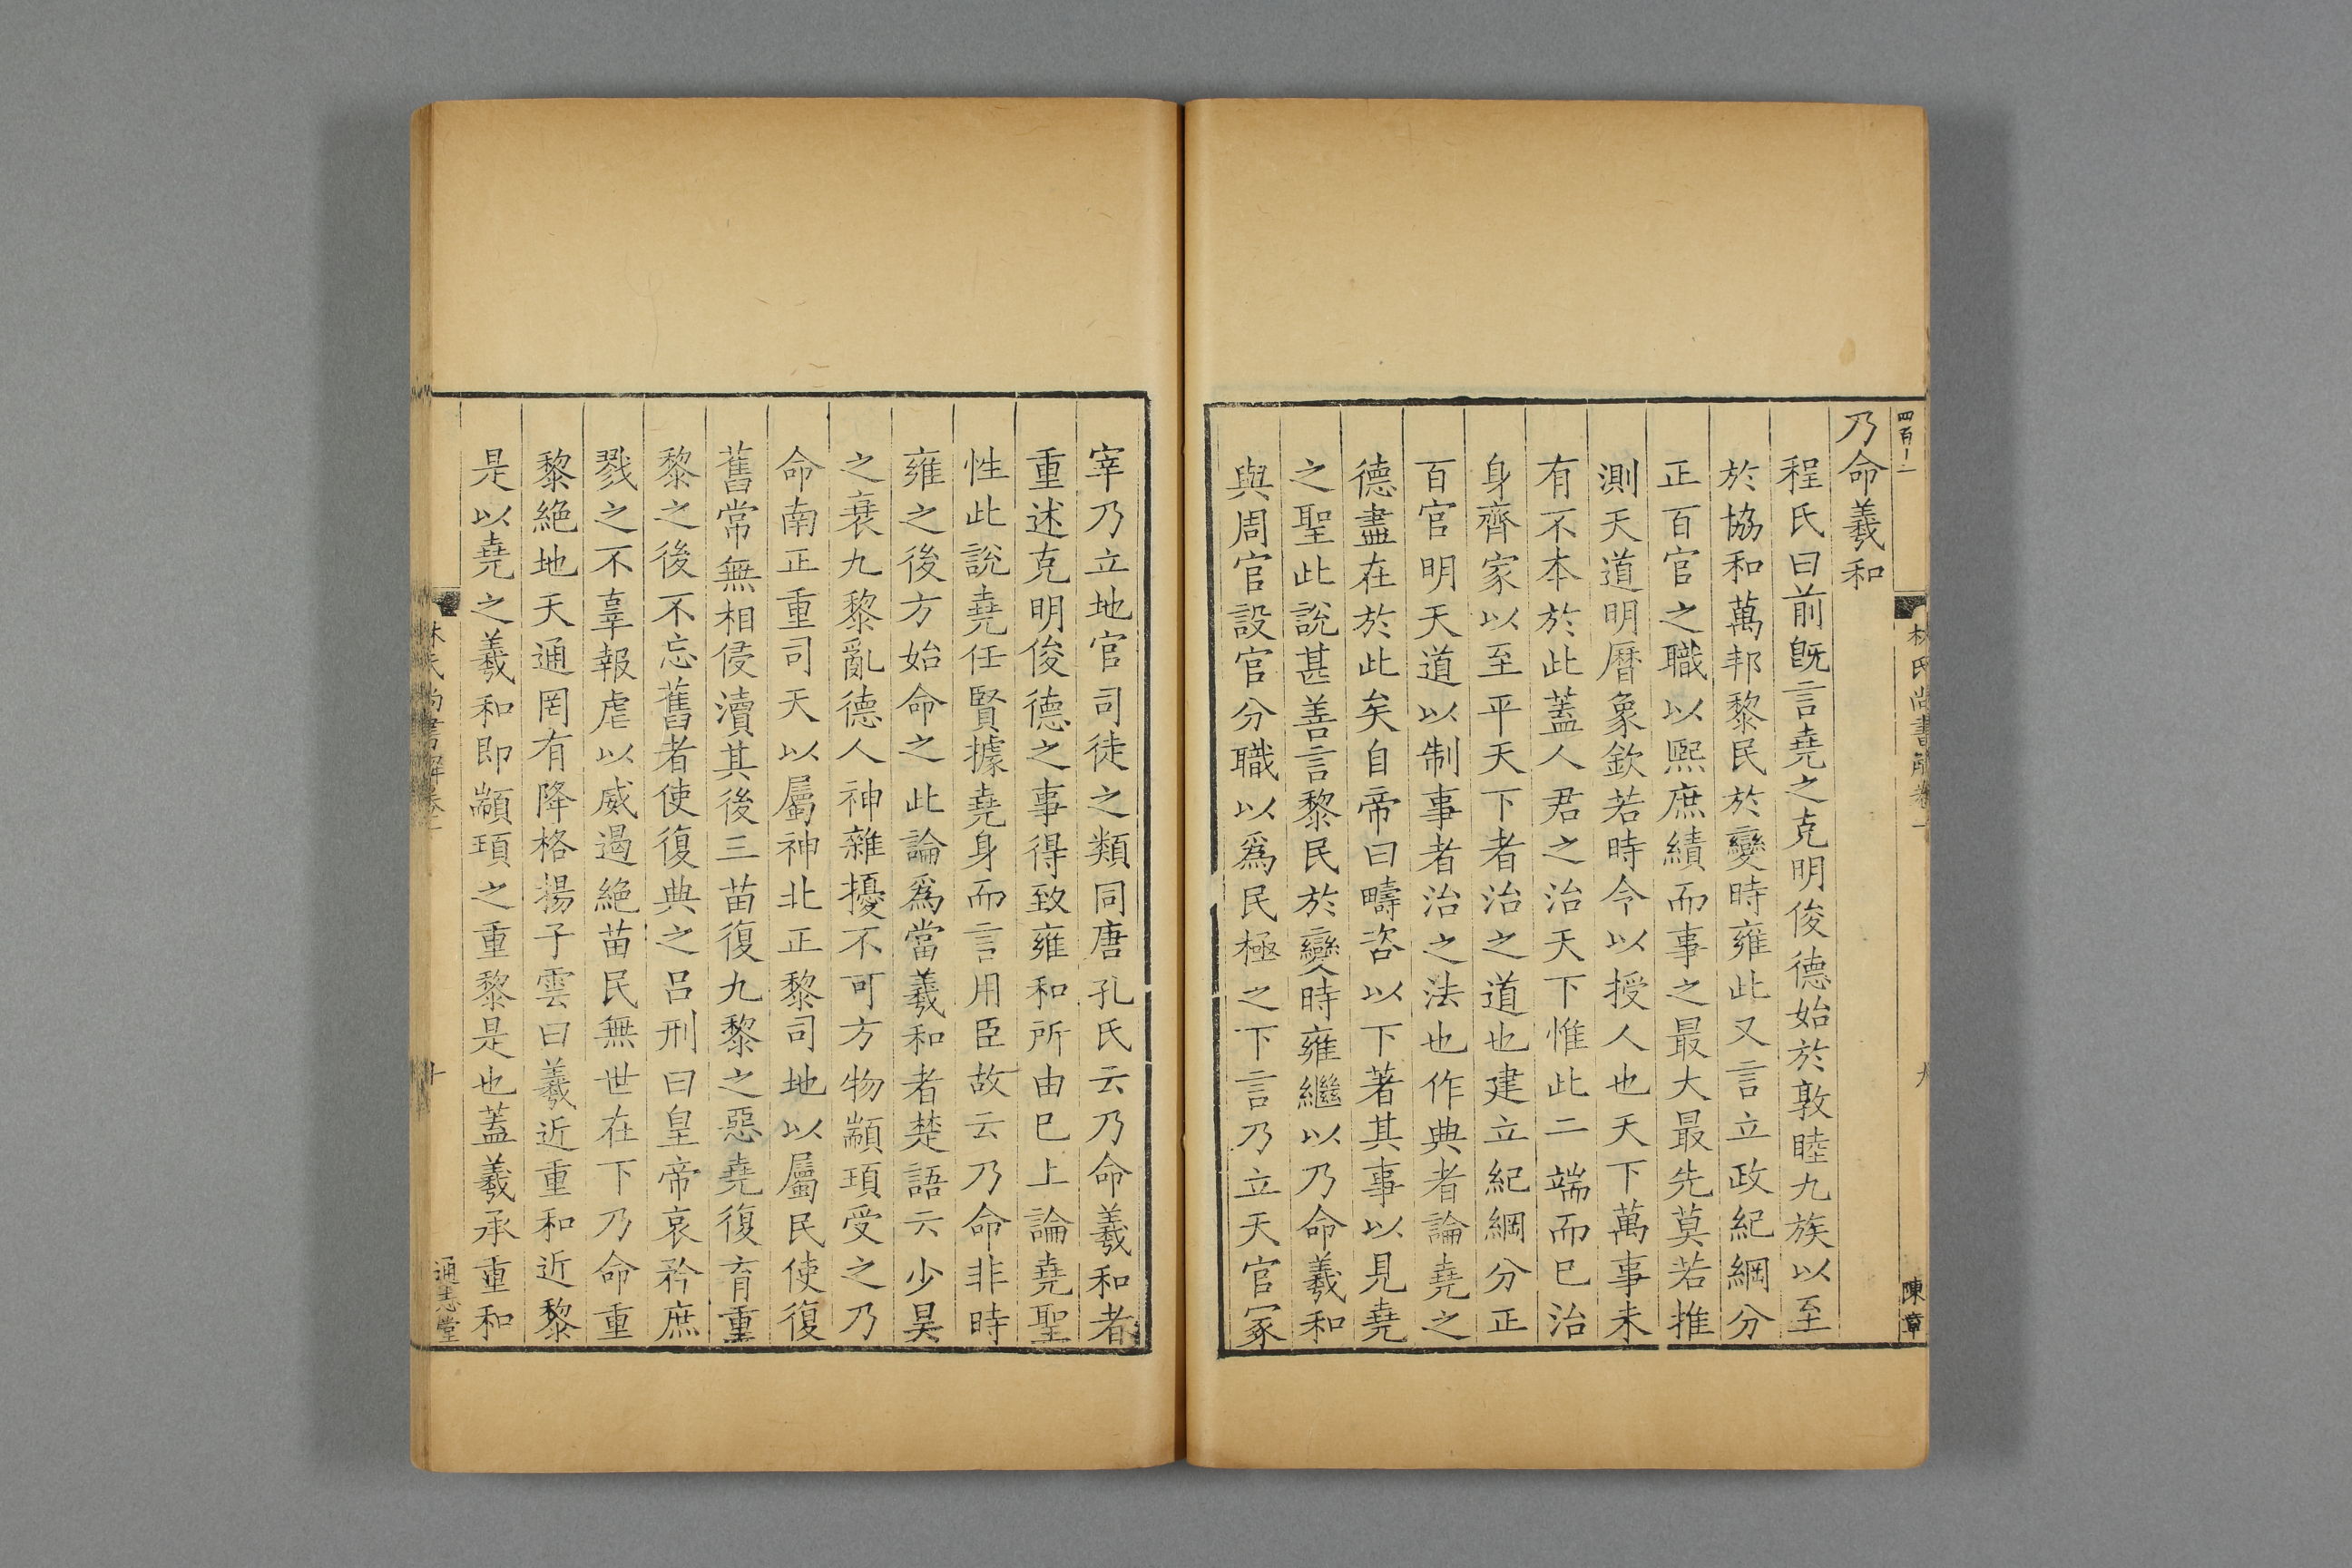 四百十二
林氏尚書解卷一
九
陳章
乃命羲和
程氏曰前旣言堯之克明俊德始於敦睦九族以至
於協和萬邦黎民於變時雍此又言立政紀綱分
正百官之職以熙庶績而事之最大最先莫若推
測天道明曆象欽若時令以授人也天下萬事未
有不本於此蓋人君之治天下惟此二端而巳治
身齊家以至平天下者治之道也建立紀綱分正
百官明天道以制事者治之法也作典者論堯之
德盡在於此矣自帝曰疇咨以下著其事以見堯
之聖此說甚善言黎民於變時雍繼以乃命羲和
與周官設官分職以爲民極之下言乃立天官冢
宰乃立地官司徒之類同唐孔氏云乃命羲和者
重述克明俊德之事得致雍和所由巳上論堯聖
性此說堯任賢據堯身而言用臣故云乃命非時
雍之後方始命之此論爲當羲和者楚語云少昊
之衰九黎亂德人神雜擾不可方物顓頊受之乃
命南正重司天以屬神北正黎司地以屬民使復
舊常無相侵瀆其後三苗復九黎之惡堯復育重
黎之後不忘舊者使復典之呂刑曰皇帝哀矜庶
戮之不辜報虐以威遏絕苗民無世在下乃命重
黎絕地天通罔有降格揚子雲曰羲近重和近黎
是以堯之羲和即顓頊之重黎是也蓋羲承重和
林氏尚書解卷一
十
通志堂